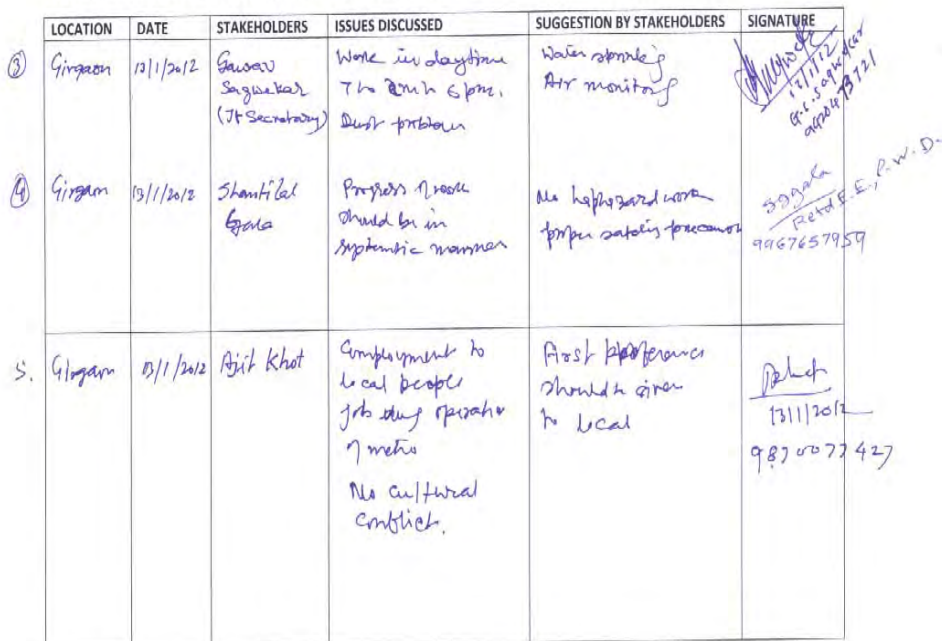 LOCATION DATE STAKEHOLDERS ISSUES DISCUSSED SUGGESTION BY STAKEHOLDERS SIGNATURE
③ Girgaon 13/1/2012 Gaurav Sagwekar (Jt Secretary)
Work in daytime
7 to 6 pm.
Dust problem
Water sprinkling
Air monitoring
13/1/12
G.S. Sagwekar
④ Girgam 13/1/2012 Shantilal Gala
Progress of work
should be in
systematic manner
No haphazard work
proper safety precaution
Retd E.E., P.W.D.
9967657959
5. Girgam 13/1/2012 Ajit Khot
Employment to
local people
job during operation
of metro
No cultural
conflict.
First preference
should be given
to local
13/1/2012
9870077427